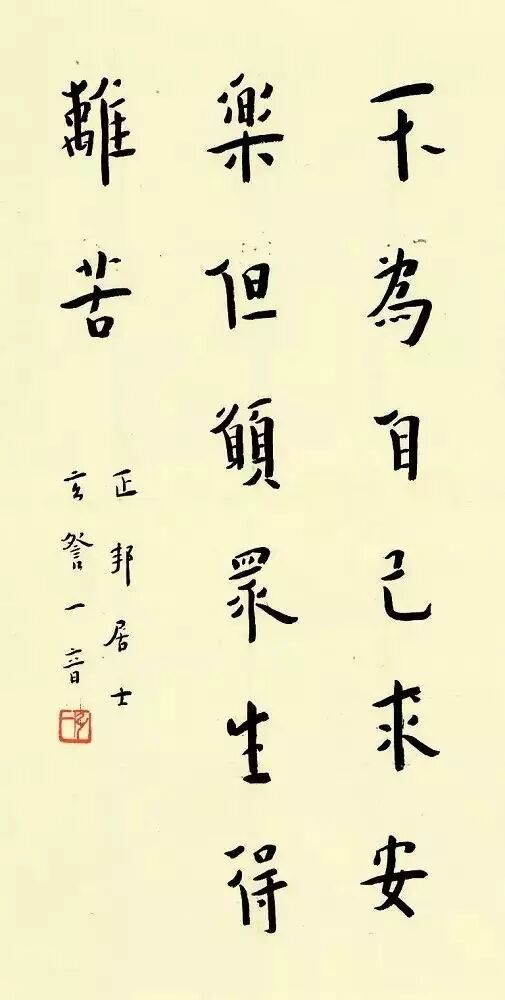 不為自己求安
樂但願眾生得
離苦
正邦居士
玄詧一音